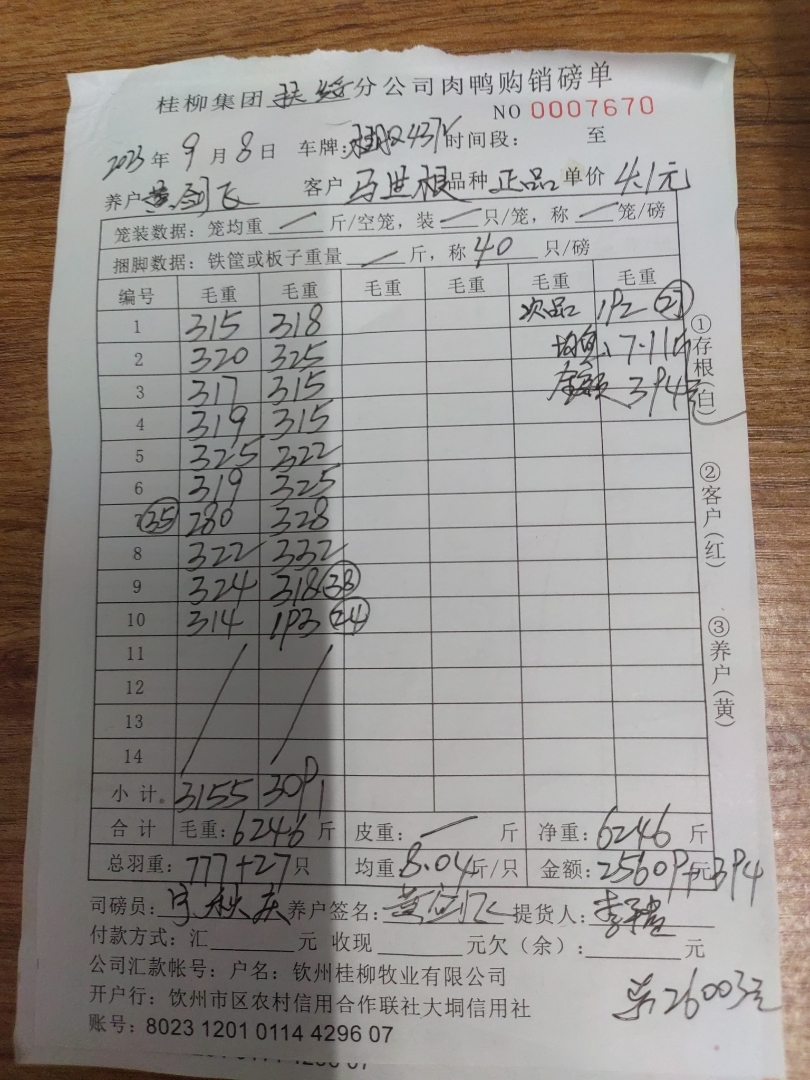 桂柳集团扶绥分公司肉鸭购销磅单
NO 0007670
2023年9月8日 车牌: 时间段: 至
养户 黄剑飞 客户 马世根 品种 正品 单价 4.1元
笼装数据: 笼均重 / 斤/空笼, 装 / 只/笼, 称 / 笼/磅
捆脚数据: 铁筐或板子重量 / 斤, 称 40 只/磅
编号 毛重 毛重 毛重 毛重 毛重 毛重
1 315 318 次品 192 27
2 320 325 均重 7.11斤
3 317 315 金额 394元
4 319 315
5 325 322
6 319 325
7 35 280 328
8 322 332
9 324 318 38
10 314 193 24
11
12
13
14
小计。 3155 3091
合计 毛重: 6246 斤 皮重: / 斤 净重: 6246 斤
总羽重: 777+27 只 均重: 8.04 斤/只 金额: 25609元+394
司磅员: 养户签名: 黄剑飞 提货人:
付款方式: 汇 元 收现 元欠(余): 元
公司汇款帐号: 户名: 钦州桂柳牧业有限公司
开户行: 钦州市区农村信用合作联社大垌信用社
共26003元
账号: 8023 1201 0114 4296 07
①存根(白)
②客户(红)
③养户(黄)